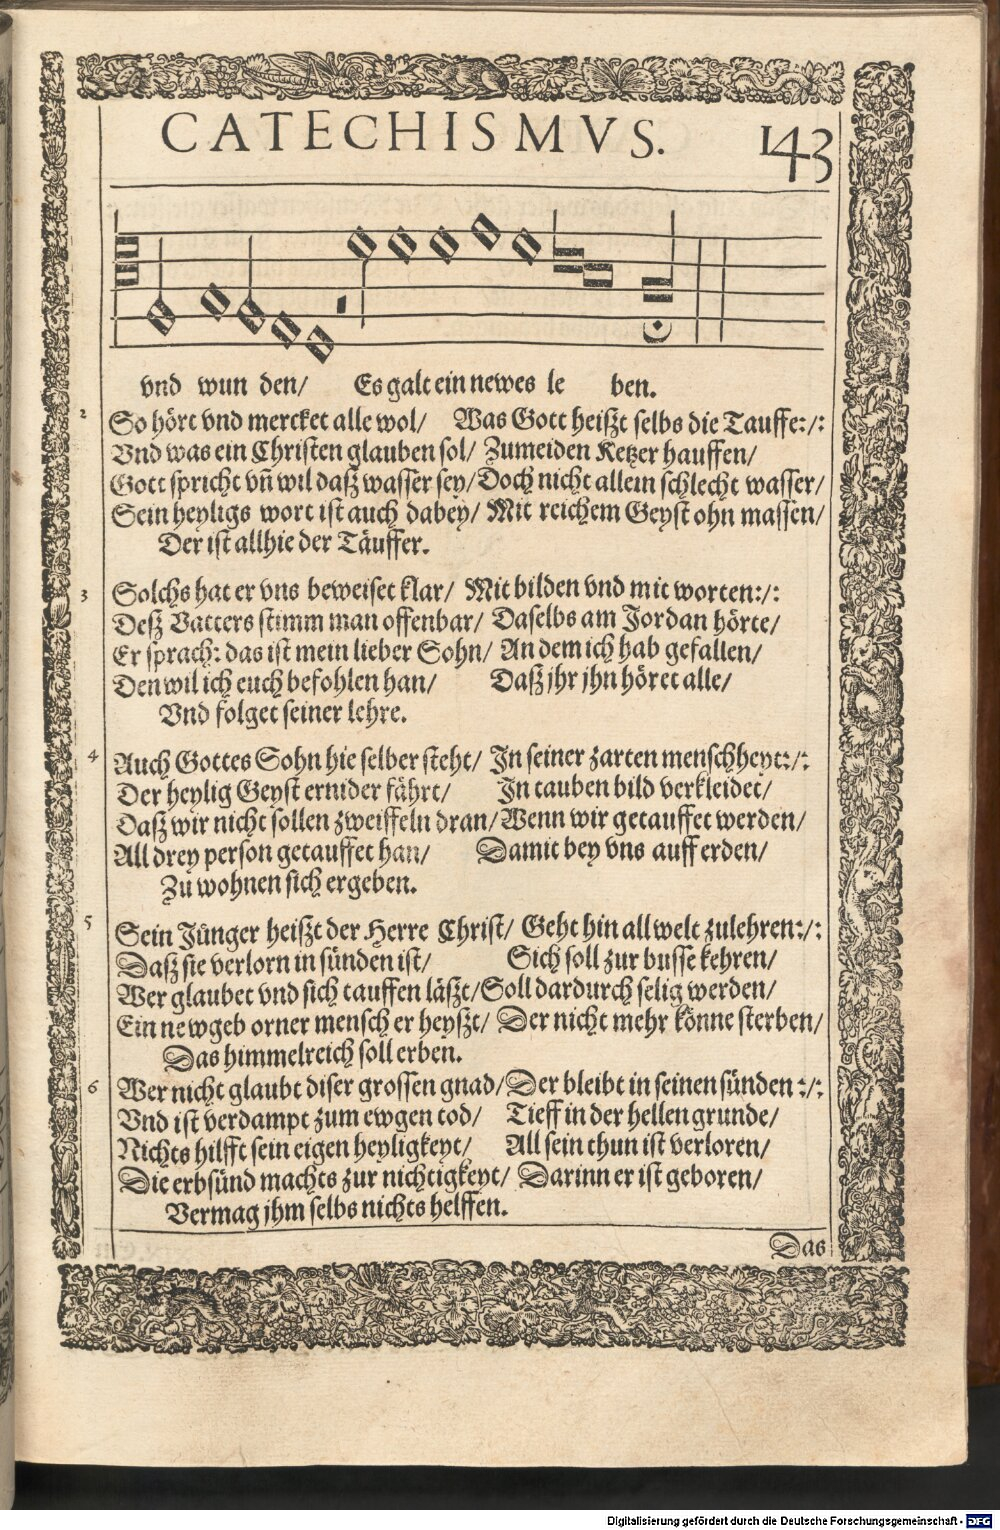 CATECHISMVS. 143
vnd wun den/ Es galt ein newes le ben.
2 So hört vnd mercket alle wol/ Was Gott heißt selbs die Tauffe:/:
Vnd was ein Christen glauben sol/ Zumeiden Ketzer hauffen/
Gott spricht vñ wil daß wasser sey/ Doch nicht allein schlecht wasser/
Sein heyligs wort ist auch dabey/ Mit reichem Geyst ohn massen/
Der ist allhie der Täuffer.
3 Solchs hat er vns beweiset klar/ Mit bilden vnd mit worten:/:
Deß Vatters stimm man offenbar/ Daselbs am Jordan hörte/
Er sprach: das ist mein lieber Sohn/ An dem ich hab gefallen/
Den wil ich euch befohlen han/ Daß jhr jhn höret alle/
Vnd folget seiner lehre.
4 Auch Gottes Sohn hie selber steht/ In seiner zarten menschheyt:/:
Der heylig Geyst ernider fährt/ In tauben bild verkleidet/
Daß wir nicht sollen zweiffeln dran/ Wenn wir getauffet werden/
All drey person getauffet han/ Damit bey vns auff erden/
Zu wohnen sich ergeben.
5 Sein Jünger heißt der Herre Christ/ Geht hin all welt zulehren:/:
Daß sie verlorn in sünden ist/ Sich soll zur busse kehren/
Wer glaubet vnd sich tauffen läßt/ Soll dardurch selig werden/
Ein newgeb orner mensch er heyßt/ Der nicht mehr könne sterben/
Das himmelreich soll erben.
6 Wer nicht glaubt diser grossen gnad/ Der bleibt in seinen sünden:/:
Vnd ist verdampt zum ewgen tod/ Tieff in der hellen grunde/
Nichts hilfft sein eigen heyligkeyt/ All sein thun ist verloren/
Die erbsünd machts zur nichtigkeyt/ Darinn er ist geboren/
Vermag jhm selbs nichts helffen.
Das
Digitalisierung gefördert durch die Deutsche Forschungsgemeinschaft - DFG